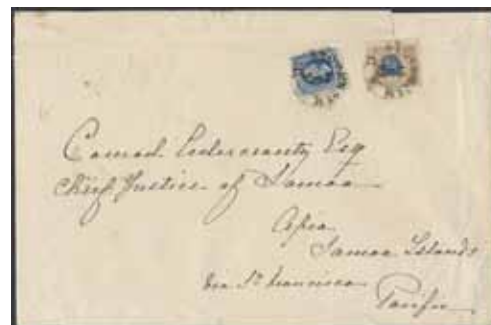 Conrad Cedercrantz Esq
Chief Justice of Samoa
Apia
Samoa Islands
via Francisco
Pacific